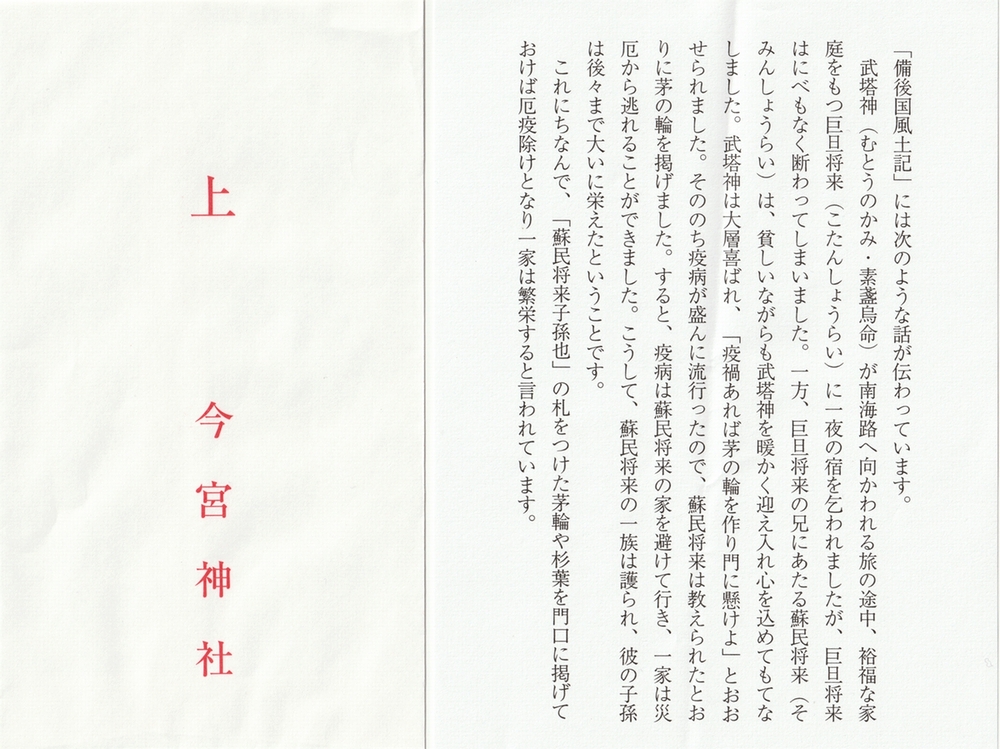 「備後国風土記」には次のような話が伝わっています。
　武塔神（むとうのかみ・素盞烏命）が南海路へ向かわれる旅の途中、裕福な家
庭をもつ巨旦将来（こたんしょうらい）に一夜の宿を乞われましたが、巨旦将来
はにべもなく断わってしまいました。一方、巨旦将来の兄にあたる蘇民将来（そ
みんしょうらい）は、貧しいながらも武塔神を暖かく迎え入れ心を込めてもてな
しました。武塔神は大層喜ばれ、「疫禍あれば茅の輪を作り門に懸けよ」とおお
せられました。そののち疫病が盛んに流行ったので、蘇民将来は教えられたとお
りに茅の輪を掲げました。すると、疫病は蘇民将来の家を避けて行き、一家は災
厄から逃れることができました。こうして、蘇民将来の一族は護られ、彼の子孫
は後々まで大いに栄えたということです。
　これにちなんで、「蘇民将来子孫也」の札をつけた茅輪や杉葉を門口に掲げて
おけば厄疫除けとなり一家は繁栄すると言われています。
上　今宮神社